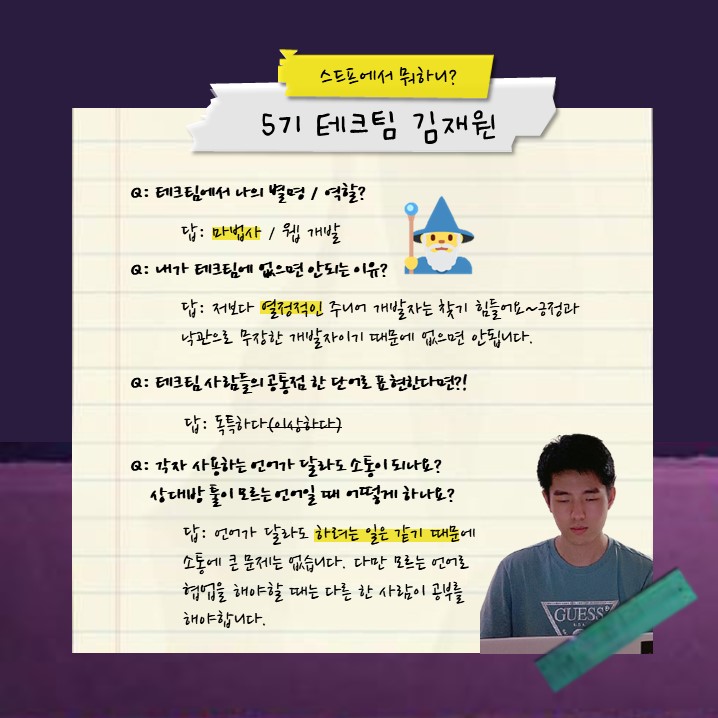 스드프에서 뭐하니?
5기 테크팀 김재원
Q: 테크팀에서 나의 별명 / 역할?
답: 마법사 / 웹 개발
Q: 내가 테크팀에 없으면 안되는 이유?
답: 저보다 열정적인 주니어 개발자는 찾기 힘들어요~긍정과
낙관으로 무장한 개발자이기 때문에 없으면 안됩니다.
Q: 테크팀 사람들의 공통점 한 단어로 표현한다면?!
답: 독특하다(이상하다)
Q: 각자 사용하는 언어가 달라도 소통이 되나요?
상대방 둘이 모르는 언어일 때 어떻게 하나요?
답: 언어가 달라도 하려는 일은 같기 때문에
소통에 큰 문제는 없습니다. 다만 모르는 언어로
협업을 해야할 때는 다른 한 사람이 공부를
해야합니다.
GUESS